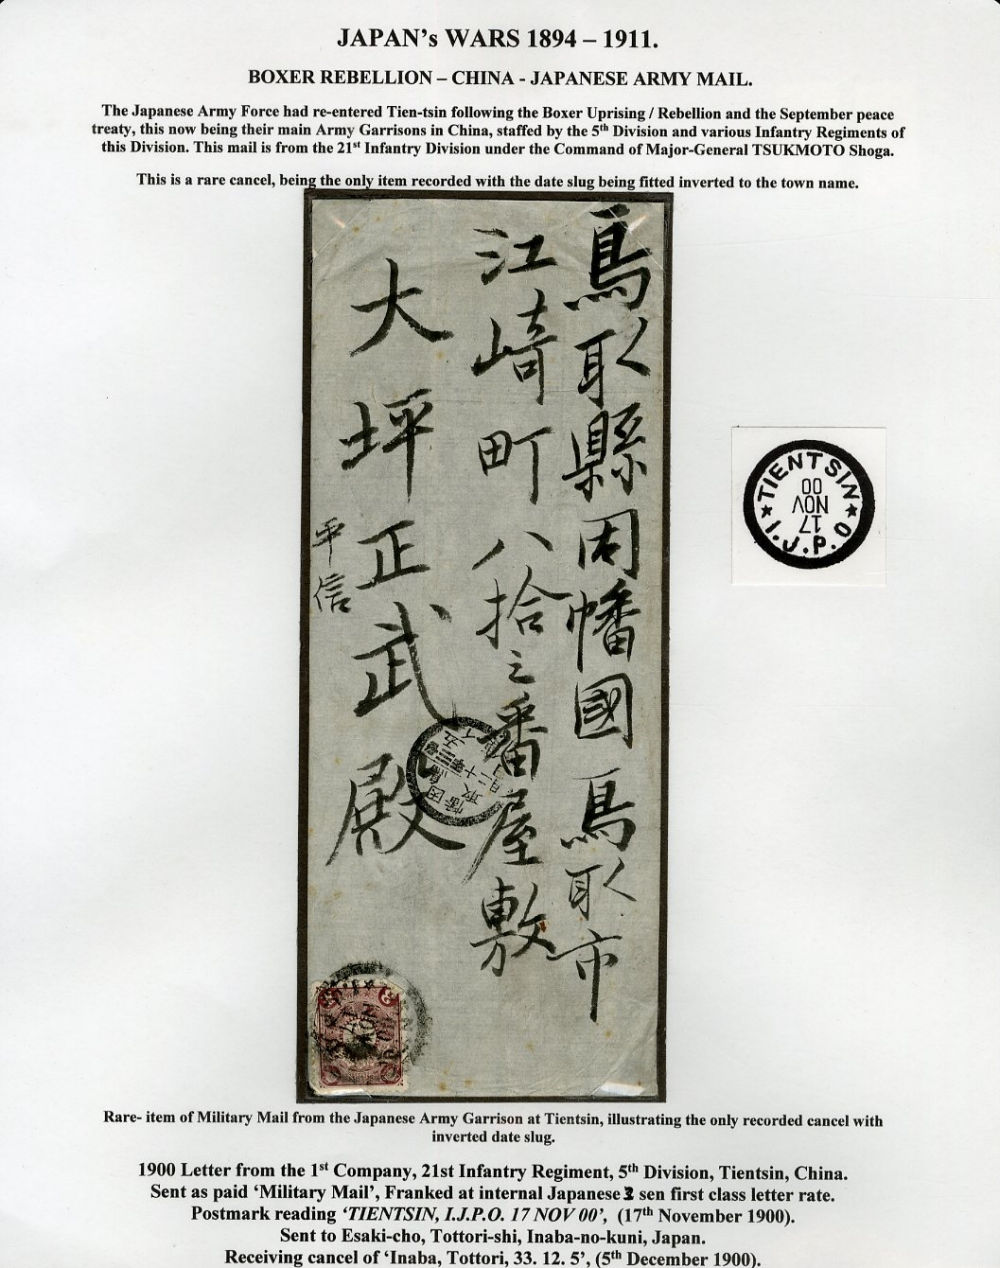 JAPAN's WARS 1894 – 1911.
BOXER REBELLION – CHINA - JAPANESE ARMY MAIL.
The Japanese Army Force had re-entered Tien-tsin following the Boxer Uprising / Rebellion and the September peace
treaty, this now being their main Army Garrisons in China, staffed by the 5th Division and various Infantry Regiments of
this Division. This mail is from the 21st Infantry Division under the Command of Major-General TSUKMOTO Shoga.
This is a rare cancel, being the only item recorded with the date slug being fitted inverted to the town name.
鳥取縣因幡國鳥取市
江崎町八拾之番屋敷
大坪正武殿
平信
TIENTSIN
17
NOV
00
I.J.P.O
Rare- item of Military Mail from the Japanese Army Garrison at Tientsin, illustrating the only recorded cancel with
inverted date slug.
1900 Letter from the 1st Company, 21st Infantry Regiment, 5th Division, Tientsin, China.
Sent as paid ‘Military Mail’, Franked at internal Japanese 3 sen first class letter rate.
Postmark reading ‘TIENTSIN, I.J.P.O. 17 NOV 00’, (17th November 1900).
Sent to Esaki-cho, Tottori-shi, Inaba-no-kuni, Japan.
Receiving cancel of ‘Inaba, Tottori, 33. 12. 5’, (5th December 1900).